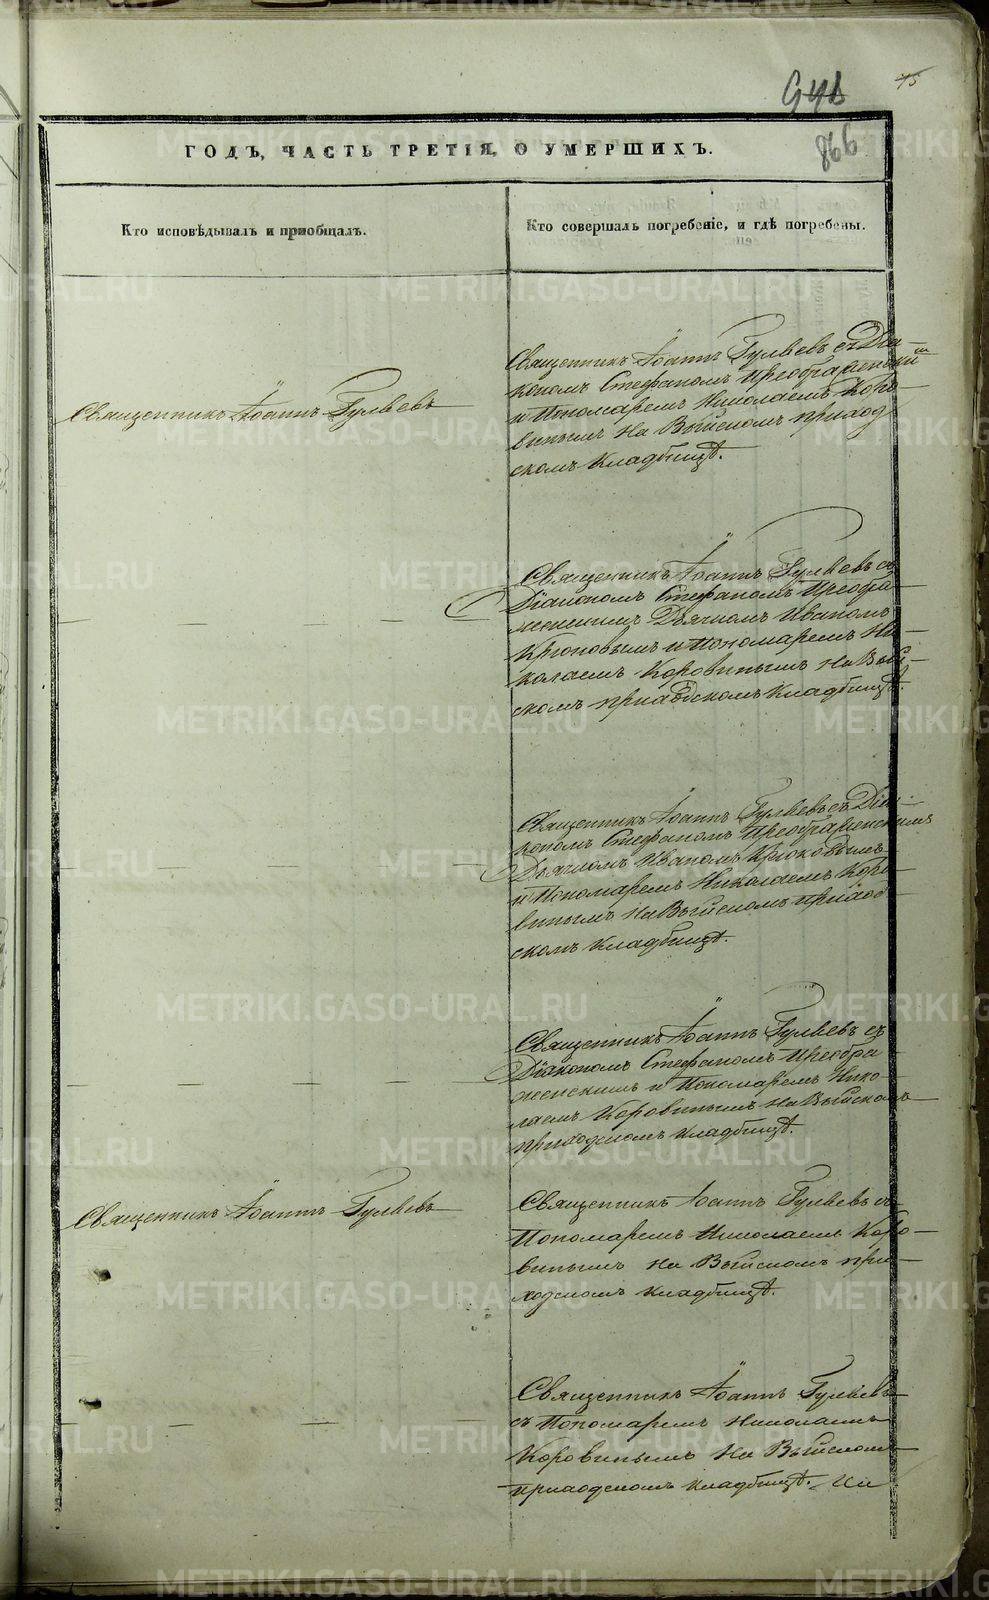 75
866
ГОДЪ, ЧАСТЬ ТРЕТІЯ, О УМЕРШИХЪ.
Кто исповѣдывалъ и приобщалъ.
Кто совершалъ погребеніе, и гдѣ погребены.
Священникъ Іоаннъ Гуляевъ
Священникъ Іоаннъ Гуляевъ съ Діа-
кономъ Стефаномъ Преображенскимъ
и Пономаремъ Николаемъ Коро-
винымъ на Выйскомъ приход
скомъ кладбищѣ.
Священникъ Іоаннъ Гуляевъ съ
Діакономъ Стефаномъ Преобра-
женскимъ Дьячкомъ Иваномъ
Крюковымъ и Пономаремъ Ни-
колаемъ Коровинымъ на Вый-
скомъ приходскомъ кладбищѣ.
Священникъ Іоаннъ Гуляевъ съ Діа-
кономъ Стефаномъ Преображенскимъ
Дьячкомъ Иваномъ Крюковымъ
и Пономаремъ Николаемъ Коро-
винымъ на Выйскомъ приход
скомъ кладбищѣ.
Священникъ Іоаннъ Гуляевъ съ
Діакономъ Стефаномъ Преобра
женскимъ и Пономаремъ Нико
лаемъ Коровинымъ на Выйскомъ
приходскомъ кладбищѣ.
Священникъ Іоаннъ Гуляевъ
Священникъ Іоаннъ Гуляевъ съ
Пономаремъ Николаемъ Коро-
винымъ на Выйскомъ при-
ходскомъ кладбищѣ.
Священникъ Іоаннъ Гуляевъ
съ Пономаремъ Николаемъ
Коровинымъ на Выйскомъ
приходскомъ кладбищѣ.
METRIKI.GASO-URAL.RU